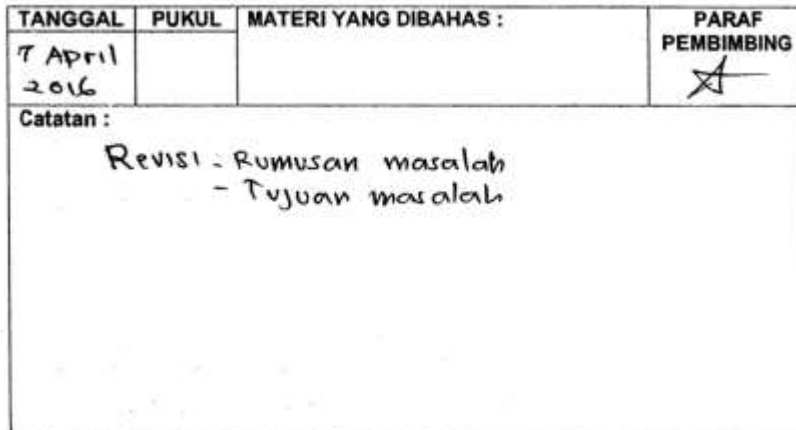 TANGGAL PUKUL MATERI YANG DIBAHAS : PARAF
PEMBIMBING
7 April
2016
Catatan :
Revisi - Rumusan masalah
- Tujuan masalah